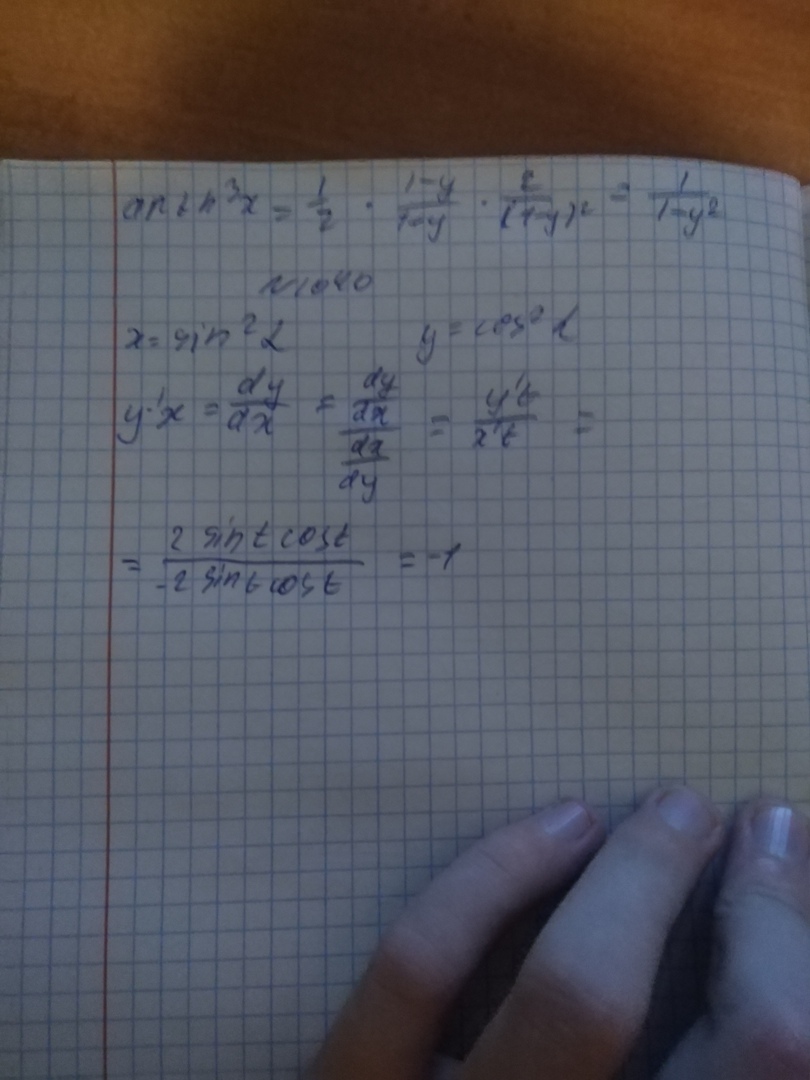 arth³x = 1/2 · 1-y/1-y · 2/(1-y)² = 1/1-y²
N1040
x = sin²α y = cos²α
y'x = dy/dx = dy/dx / dx/dy = y't/x't =
= 2 sin t cos t / -2 sin t cos t = -1